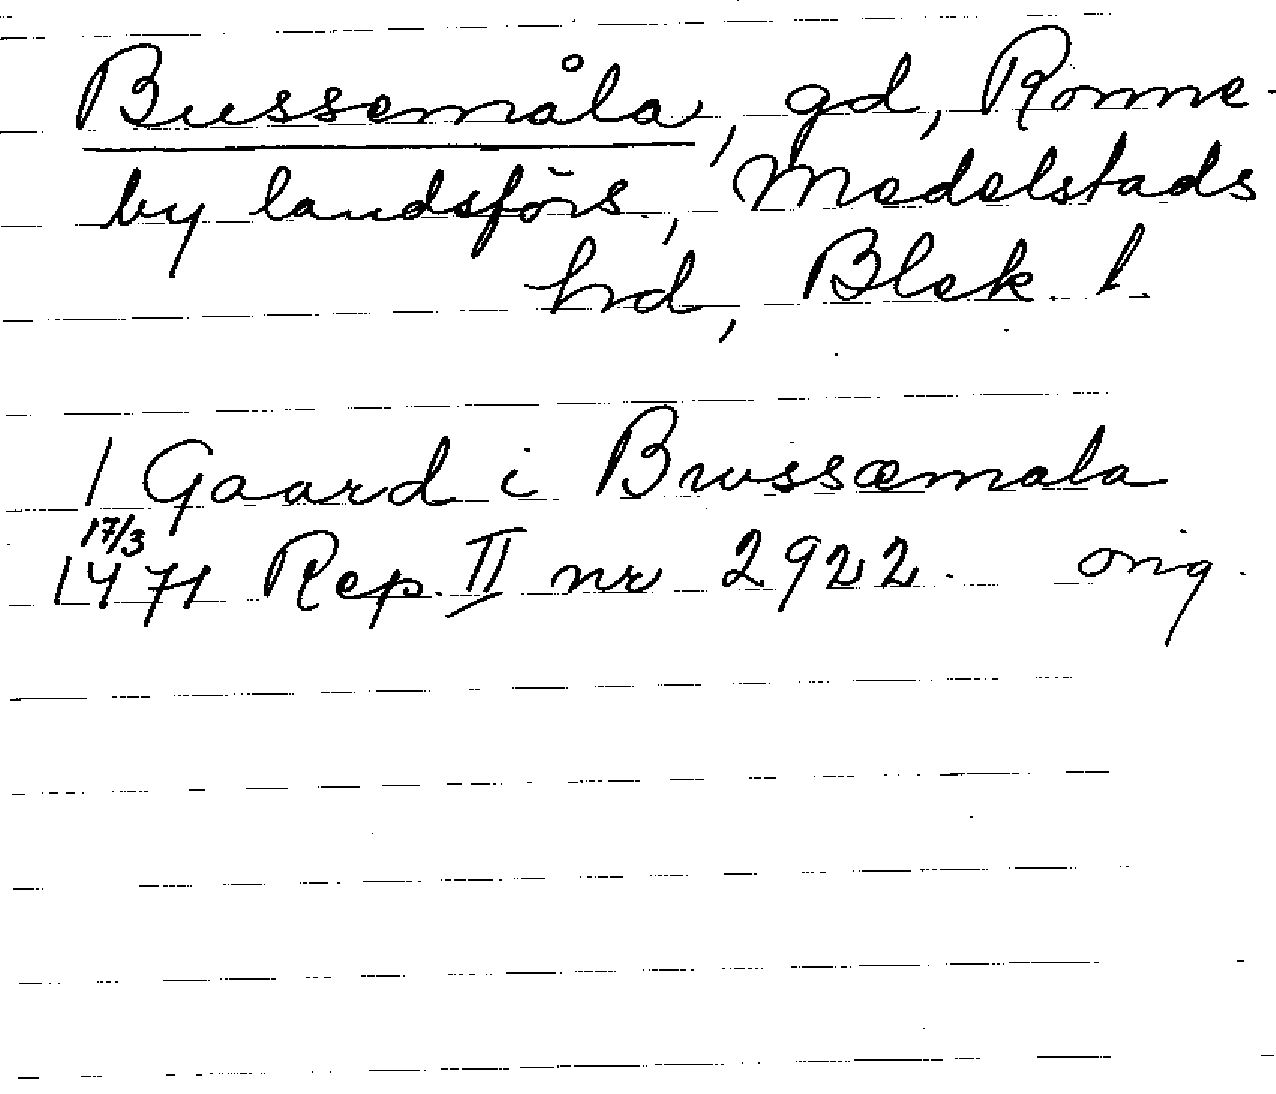 Bussemåla, gd, Ronne-
by landsförs., Medelstads
hd, Blek. l.
1 Gaard i Brwssæmala
17/3
1471 Rep. II nr 2922. orig.